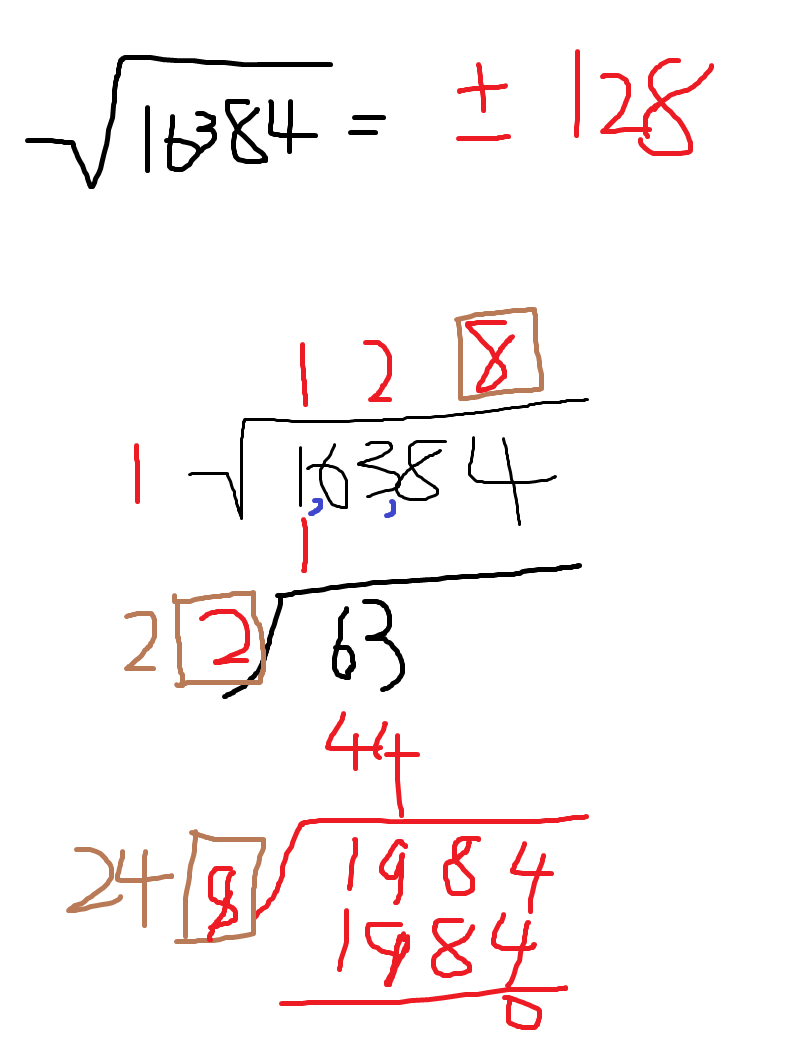 √16384 = ± 128
1 2 8
1 √1,63,84
1
2 2 63
44
24 8 1984
1984
0